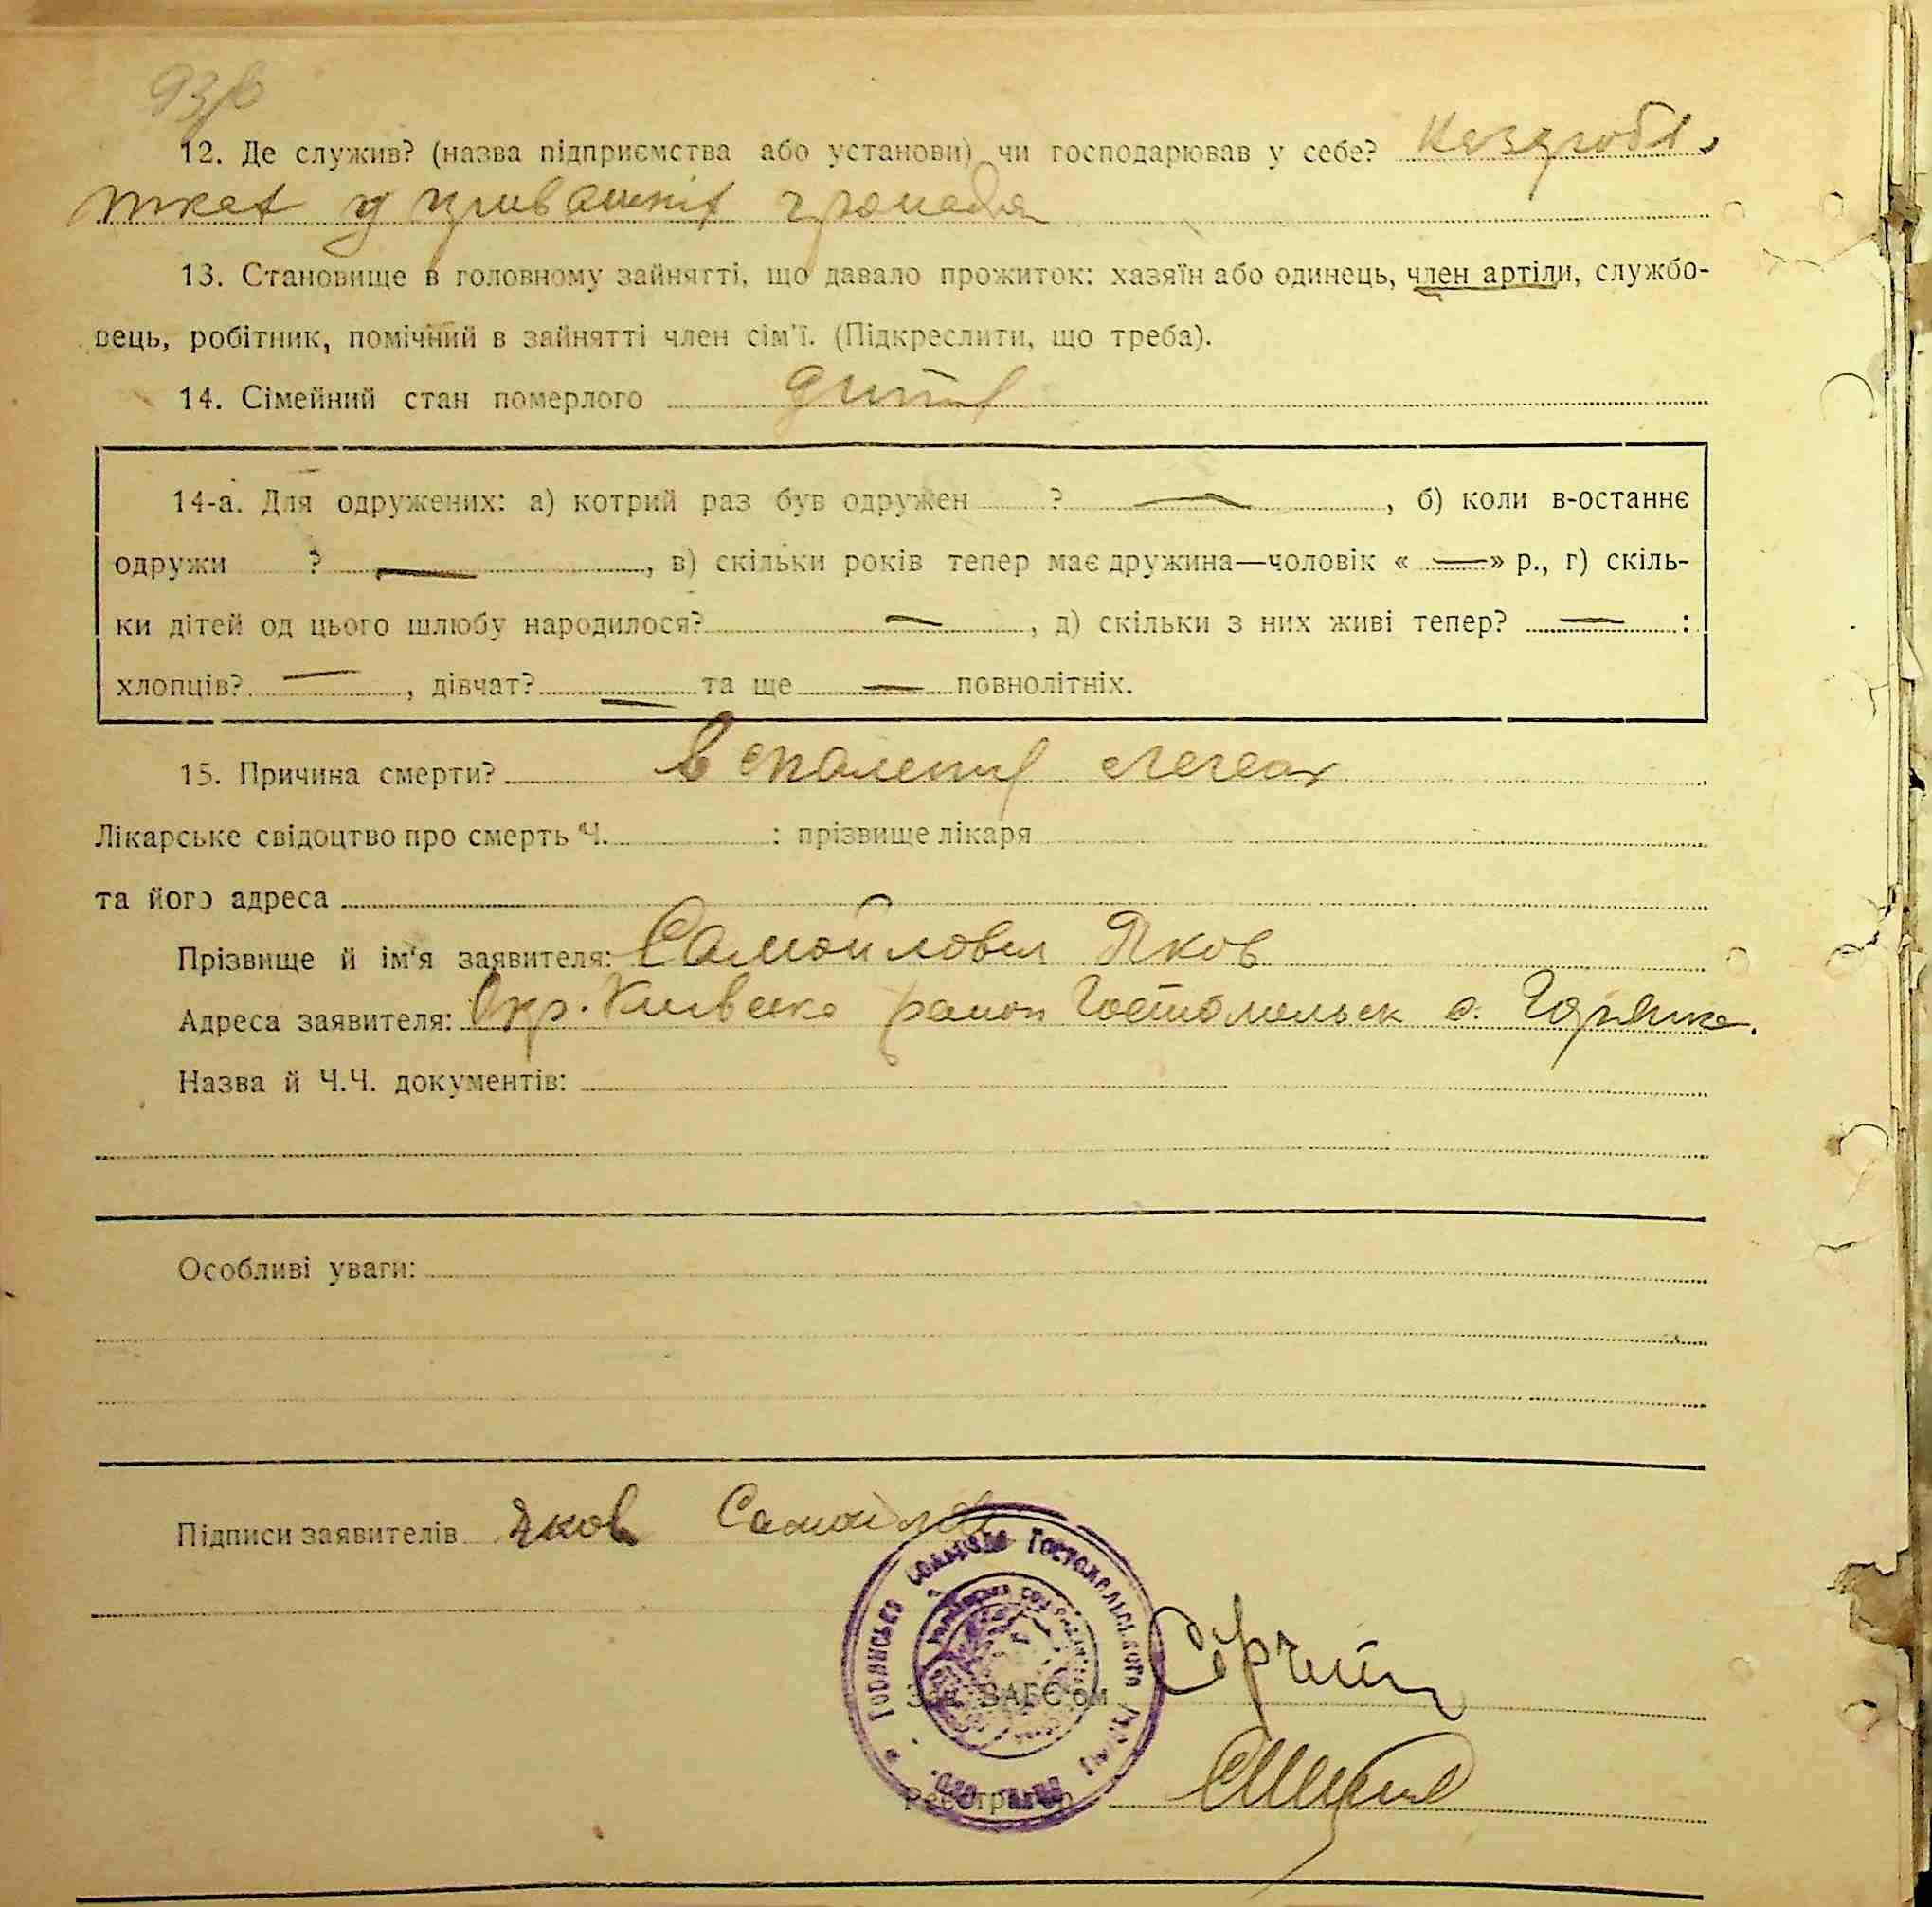 93/б
12. Де служив? (назва підприємства або установи) чи господарював у себе?
громада
13. Становище в головному зайнятті, що давало прожиток: хазяїн або одинець, член артіли, службо-
вець, робітник, помічний в зайнятті член сім'ї. (Підкреслити, що треба).
14. Сімейний стан померлого
14-а. Для одружених: а) котрий раз був одружен ? —, б) коли в-останнє
одружи ? —, в) скільки років тепер має дружина—чоловік « — » р., г) скіль-
ки дітей од цього шлюбу народилося? —, д) скільки з них живі тепер? — :
хлопців? —, дівчат? — та ще — повнолітніх.
15. Причина смерти? Воспаления легких
Лікарське свідоцтво про смерть Ч. : прізвище лікаря
та його адреса
Прізвище й ім'я заявителя: Самойлович Яков
Адреса заявителя: Окр. Київська район Гостомельск с. Горянка.
Назва й Ч.Ч. документів:
Особливі уваги:
Підписи заявителів Яков Самойлов
Горянська сільрада Гостомельського району
Зав. ЗАГС'ом
Реєстратор